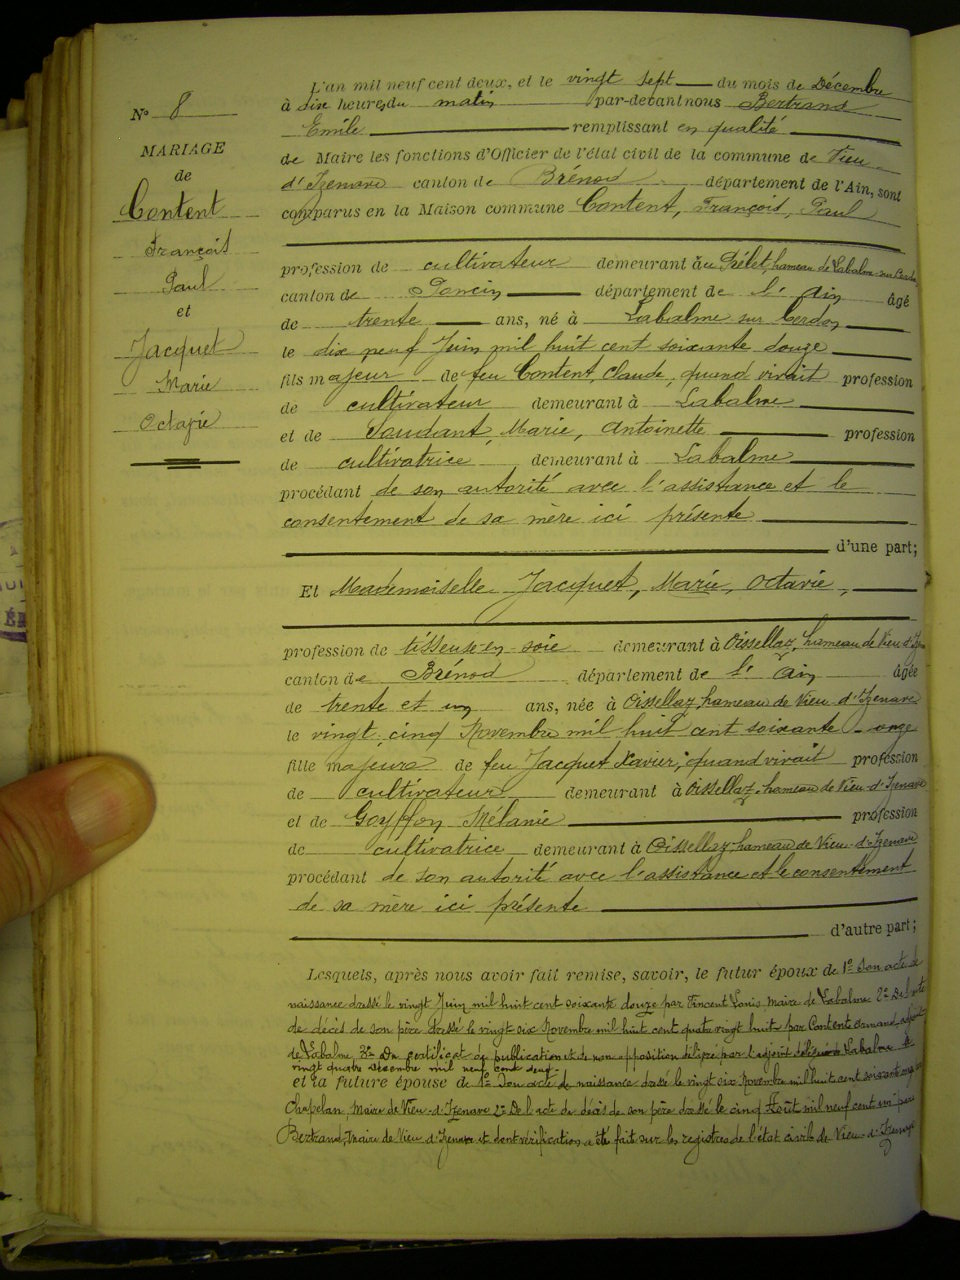 N° 8
MARIAGE
de
Content
François
Paul
et
Jacquet
Marie
Octavie
L'an mil neuf cent deux, et le vingt sept du mois de Décembre
à dix heures du matin par-devant nous Bertrand
Emile remplissant en qualité
de Maire les fonctions d'Officier de l'état civil de la commune de Vieu-
d'Izenave canton de Brénod département de l'Ain, sont
comparus en la Maison commune Content, François, Paul
profession de cultivateur demeurant au Prélet, hameau de Labalme-sur-Cerdon
canton de Poncin département de l'Ain âgé
de trente ans, né à Labalme sur Cerdon
le dix neuf Juin mil huit cent soixante douze
fils majeur de feu Content, Claude, quand vivait profession
de cultivateur demeurant à Labalme
et de Marie, Antoinette profession
de cultivatrice demeurant à Labalme
procédant de son autorité avec l'assistance et le
consentement de sa mère ici présente
d'une part;
Et Mademoiselle Jacquet, Marie, Octavie,
profession de tisseuse en soie demeurant à Oissellaz, hameau de Vieu d'Izenave
canton de Brénod département de l'Ain âgée
de trente et un ans, née à Oissellaz hameau de Vieu-d'Izenave
le vingt-cinq Novembre mil huit cent soixante onze
fille majeure de feu Jacquet Xavier, quand vivait profession
de cultivateur demeurant à Oissellaz, hameau de Vieu-d'Izenave
et de Goyffon Mélanie profession
de cultivatrice demeurant à Oissellaz, hameau de Vieu-d'Izenave
procédant de son autorité avec l'assistance et le consentement
de sa mère ici présente
d'autre part;
Lesquels, après nous avoir fait remise, savoir, le futur époux de 1° Son acte de
naissance dressé le vingt Juin mil huit cent soixante douze par Vincent Louis Maire de Labalme 2° De l'acte
de décès de son père dressé le vingt six Novembre mil huit cent quatre vingt huit par Content adjoint
de Labalme 3° Du certificat de publication et de non opposition délivré par l'adjoint de Labalme le
vingt quatre décembre mil neuf cent deux
et la future épouse de 1° Son acte de naissance dressé le vingt six Novembre mil huit cent soixante onze par
Chapelan, Maire de Vieu-d'Izenave 2° De l'acte de décès de son père dressé le cinq Août mil neuf cent un par
Bertrand, Maire de Vieu d'Izenave et dont vérification a été fait sur les registres de l'état civil de Vieu-d'Izenave